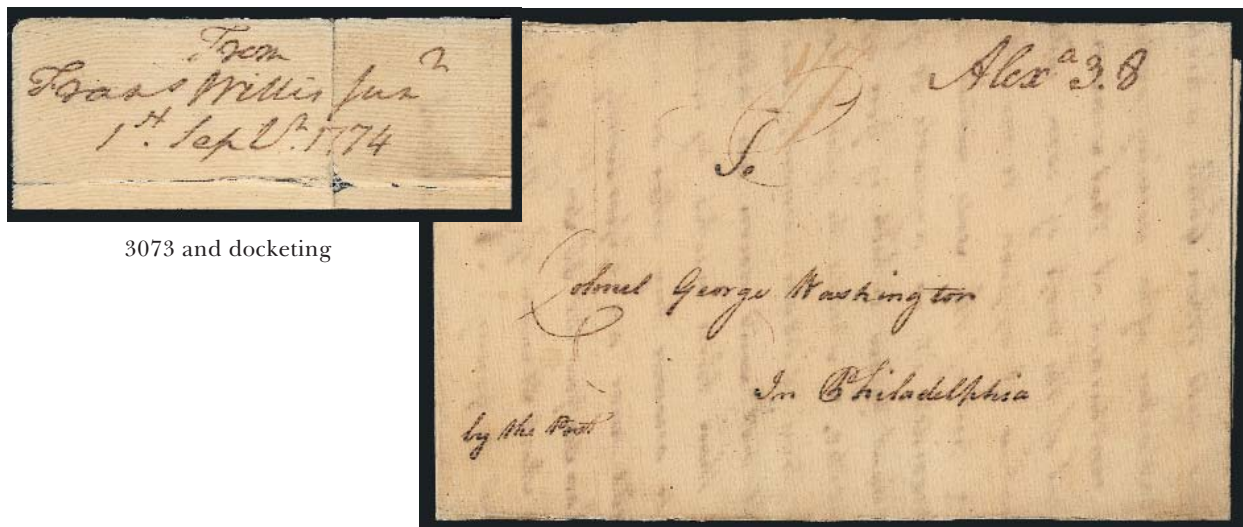 From
Frans Willis Junr
1st. Septr. 1774
3073 and docketing
Alexa 3.8
To
Colonel George Washington
In Philadelphia
by the Post